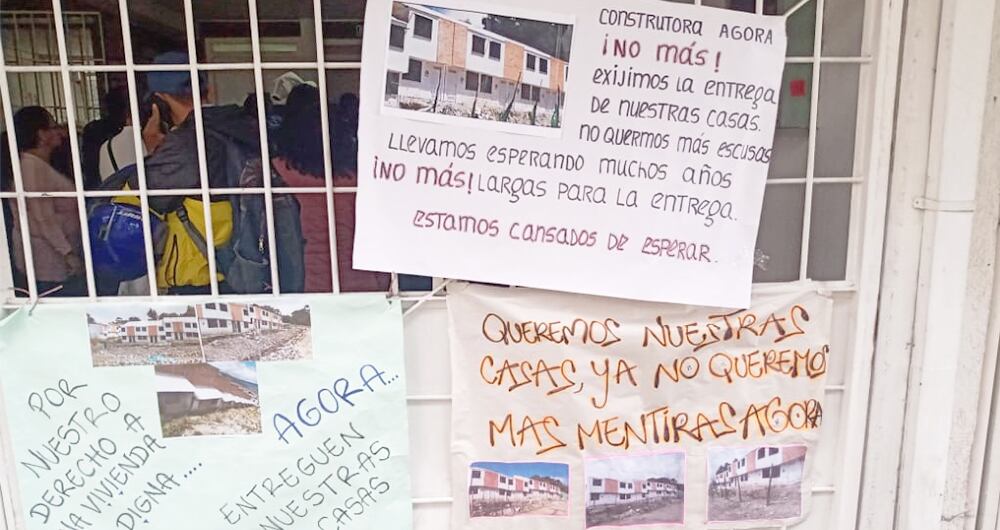 CONSTRUTORA AGORA
¡NO MÁS!
EXIJIMOS LA ENTREGA
DE NUESTRAS CASAS.
NO QUERMOS MÁS ESCUSAS
LLEVAMOS ESPERANDO MUCHOS AÑOS
¡NO MÁS! LARGAS PARA LA ENTREGA.
ESTAMOS CANSADOS DE ESPERAR.
POR
NUESTRO
DERECHO A
NA VIVIENDA
DIGNA.....
AGORA...
ENTREGUEN
NUESTRAS
CASAS
QUEREMOS NUESTRAS
CASAS, YA NO QUEREMOS
MAS MENTIRAS AGORA